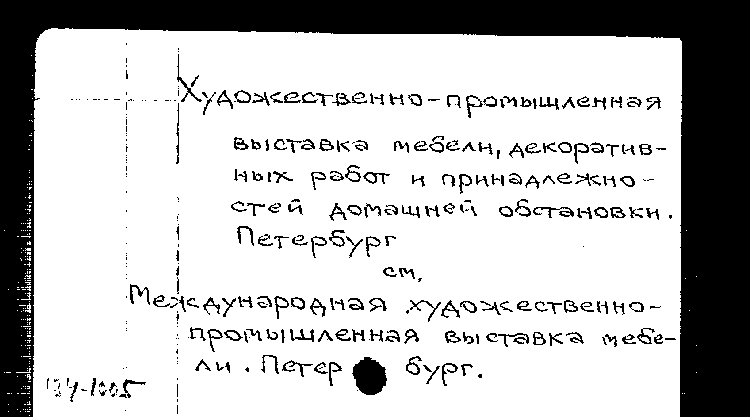 Художественно-промышленная
выставка мебели, декоратив-
ных работ и принадлежно-
стей домашней обстановки.
Петербург
см,
Международная художественно-
промышленная выставка мебе-
ли. Петербург.